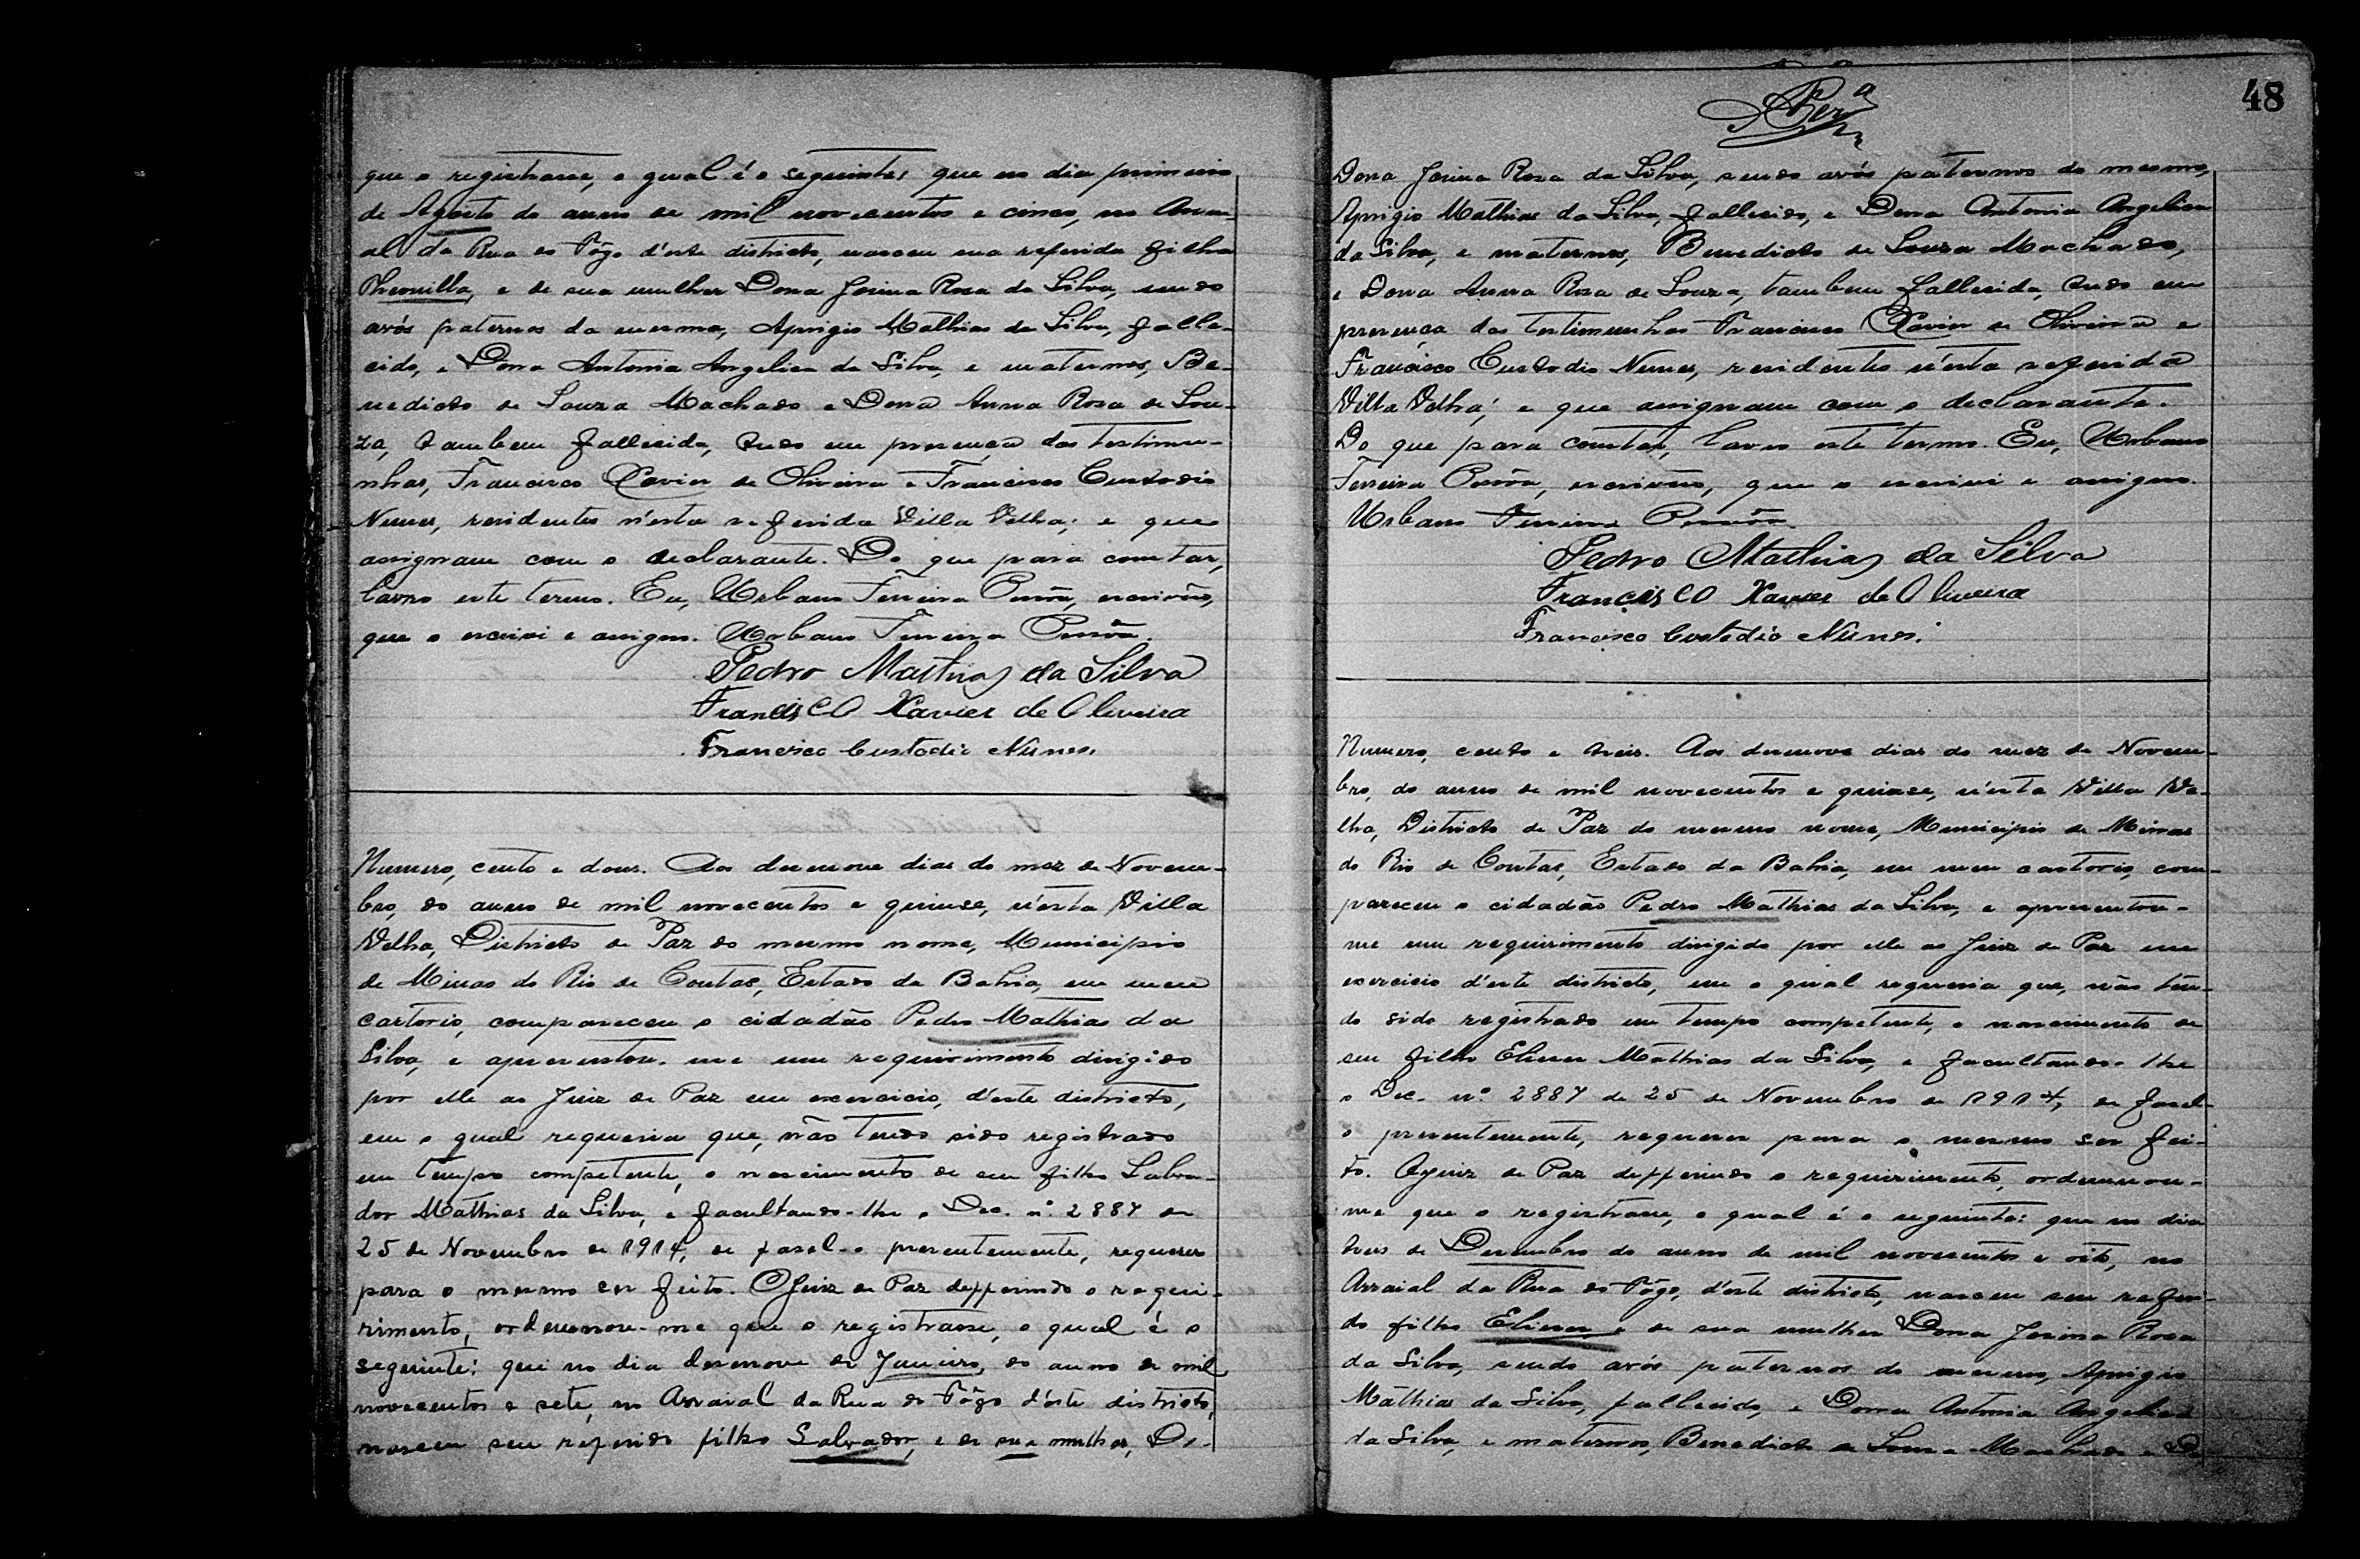 que o registrasse, o qual é o seguinte: que no dia primeiro
de Agosto do anno de mil novecentos e cinco, no Arrai-
al da Rua do Fôgo d'este districto, nasceu sua referida filha
e de sua mulher Dona Jesina Rosa da Silva, sendo
avós paternos da mesma, Aprigio Mathias da Silva, falle-
cido, e Dona Antonia Angelica da Silva, e maternos, Be-
nedicto de Souza Machado e Dona Anna Rosa de Sou-
za, tambem fallecida, tudo em presença das testimu-
nhas, Francisco Xavier de Oliveira e Francisco Custodio
Nunes, residentes n'esta referida Villa Velha; e que
assignam com o declarante. Do que para constar,
lavro este termo. Eu, Urbano Ferreira escrivão,
que o escrivi e assigno. Urbano Ferreira
Pedro Mathias da Silva
Francisco Xavier de Oliveira
Francisco Custodio Nunes.
Numero, cento e dous. Aos desenove dias do mez de Novem-
bro, do anno de mil novecentos e quinse, n'esta Villa
Velha, Districto de Paz do mesmo nome, Municipio
de Minas do Rio de Contas, Estado da Bahia, em meu
cartorio, compareceu o cidadão Pedro Mathias da
Silva, e apresentou-me um requirimento dirigido
por elle ao Juiz de Paz em exercicio, d'este districto,
em o qual requeria que, não tendo sido registrado
em tempo competente, o nascimento de seu filho Salva-
dor Mathias da Silva, e facultando-lhe o Dec. nº 2887 de
25 de Novembro de 1914, de fasel-o presentemente, requerer
para o mesmo ser feito. O Juiz de Paz defferindo o requi-
rimento, ordennou-me que o registrasse, o qual é o
seguinte: que no dia desenove de Janeiro, do anno de mil
novecentos e sete, no Arraial da Rua do Fôgo d'este districto,
nasceu seu referido filho Salvador, e de sua mulher, Do-
48
Dona Jesina Rosa da Silva, sendo avós paternos do mesmo,
Aprigio Mathias da Silva, fallecido, e Dona Antonia Angelica
da Silva, e maternos, Benedicto de Souza Machado,
e Dona Anna Rosa de Souza, tambem fallecida, tudo em
presença das testimunhas Francisco Xavier de Oliveira e
Francisco Custodio Nunes, residentes n'esta referida
Villa Velha; e que assignam com o declarante.
Do que para constar, lavro este termo. Eu, Urbano
Ferreira escrivão, que o escrivi e assigno.
Urbano Ferreira
Pedro Mathias da Silva
Francisco Xavier de Oliveira
Francisco Custodio Nunes.
Numero, cento e treis. Aos desenove dias do mez de Novem-
bro, do anno de mil novecentos e quinse, n'esta Villa Ve-
lha, Districto de Paz do mesmo nome, Municipio de Minas
do Rio de Contas, Estado da Bahia, em meu cartorio, com-
pareceu o cidadão Pedro Mathias da Silva, e apresentou-
me um requirimento dirigido por elle ao Juiz de Paz em
exercicio d'este districto, em o qual requeria que, não ten-
do sido registrado em tempo competente, o nascimento de
seu filho Elieser Mathias da Silva, e facultando-lhe
o Dec. nº 2887 de 25 de Novembro de 1914, de fasel-
o presentemente, requerer para o mesmo ser fei-
to. O Juiz de Paz defferindo o requirimento, ordennou-
me que o registrasse, o qual é o seguinte: que no dia
treis de Desembro do anno de mil novecentos e oito, no
Arraial da Rua do Fôgo, d'este districto, nasceu seu referi-
do filho Elieser, e de sua mulher Dona Jesina Rosa
da Silva, sendo avós paternos do mesmo, Aprigio
Mathias da Silva, fallecido, e Dona Antonia Angelica
da Silva, e maternos, Benedicto de Souza Machado e Do-